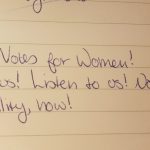 Votes for Women!
us! Listen to us!
now!